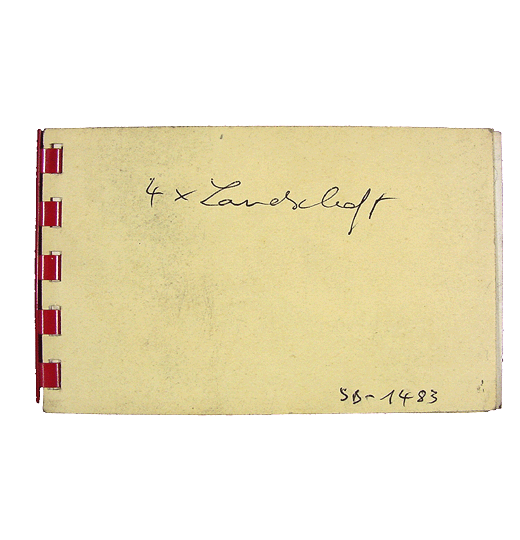 4 x Landschaft
SB-1483